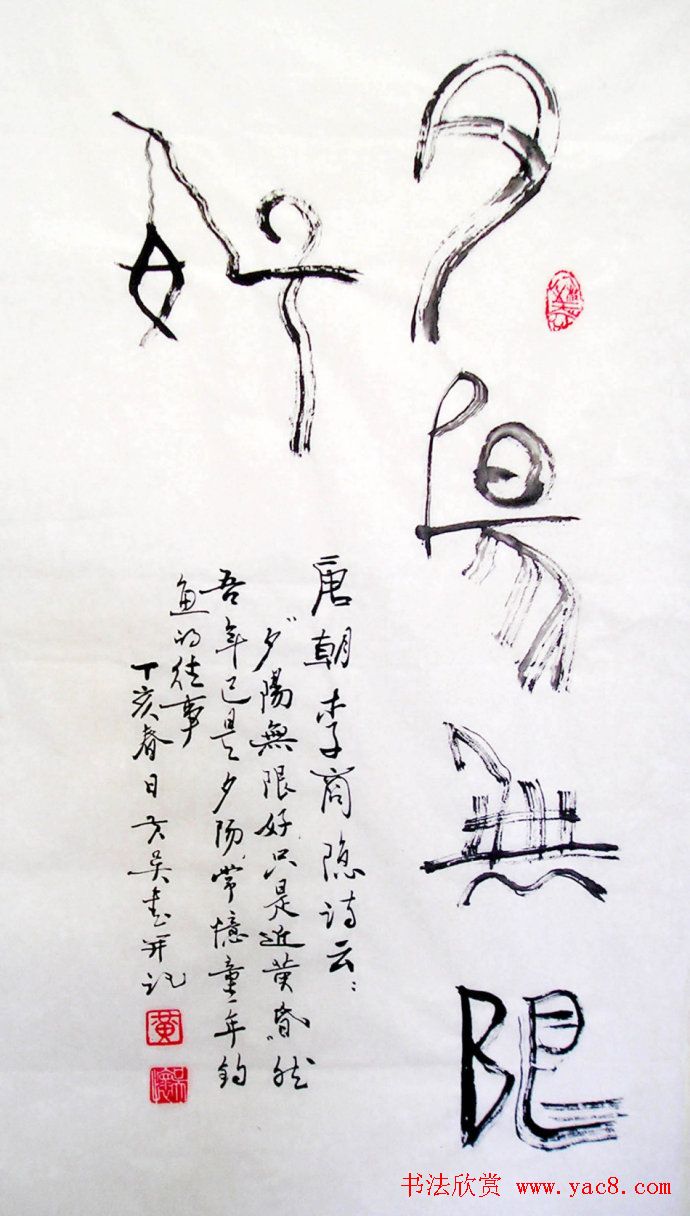 夕陽無限
好
唐朝李商隐诗云：
“夕陽無限好，只是近黄昏”。然
吾年已是夕陽，常憶童年钓
鱼的往事
丁亥春日大吴书并记
黄
书法欣赏 www.yac8.com